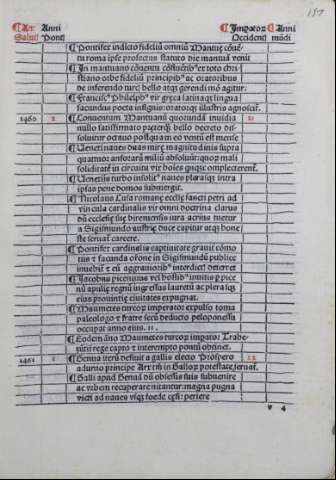 157
¶ Xpi Anni ¶ Impator ¶ Anni
Salut Pont Occident mūdi
¶ Pontifex indicto fideliū omniū Mantuę cōuē
tu roma ipse profectus statuto die mantuā venit
¶ In mantuano cōuentu
stiano orbe fidelium principibus ac oratoribus
de inferendo turci bello atqz gerendi mō agitur.
¶ Franciscus Philelphus vir greca latinaqz lingua
facundus poeta insignis: oratorqz illustris agnoscitur.
1460 2 ¶ Conuentum Mantuanū quorundā inuidia 21
nullo satisfirmato paterqz bello decreto dis-
soluitur octauo postquam eo ventū est mense
¶ Veneti naues duas mirę magnitudinis supra
quatuor anforarū miliū absoluūt: quoqz mali
soliditatē in circuitu vix boies qnqz complecterent.
¶ Venetiis turbo insolitus naues plerasqz intra
ipsas pene domos submergit.
¶ Nicolaus Cusa romanę ecclię sancti petri ad
vincula cardinalis vir omni doctrina clarus
dū ecclesię suę brixinensis iura acrius metur
a Sigismundo austrię duce capitur atqz hone
ste seruatur carcere.
¶ Pontifex cardinalis captiuitate grauit cōmo
tus et facunda oratione in Sigismundū publice
inuehit et eū aggrauatoriis interdicti deterret
¶ Jacobus picininus vel hostibus inuitis p pice
nū apulięqz regnū ingressus laureti ac pleraqz
eius prouintię ciuitates expugnat.
¶ Maumetes turcoqz imperator expulso toma
paleologo et fratre secū deducto peloponessū
occupat anno eius. 11.
¶ Eodem anno Maumetes turcoqz imperator Trabe-
zūtii rege capto et interempto pontū obtinet.
1461 3 ¶ Genua vero desiuit a gallis electo Prospero 22
adurno principe Arx tn̄ in Galloqz potestate seruat.
¶ Galli apud Genuā dū obsessis suis subuenire
ac vrbem recuperare nituntur: magna pugna
victi ad naues vsqz foede cęsi: periere
v 4